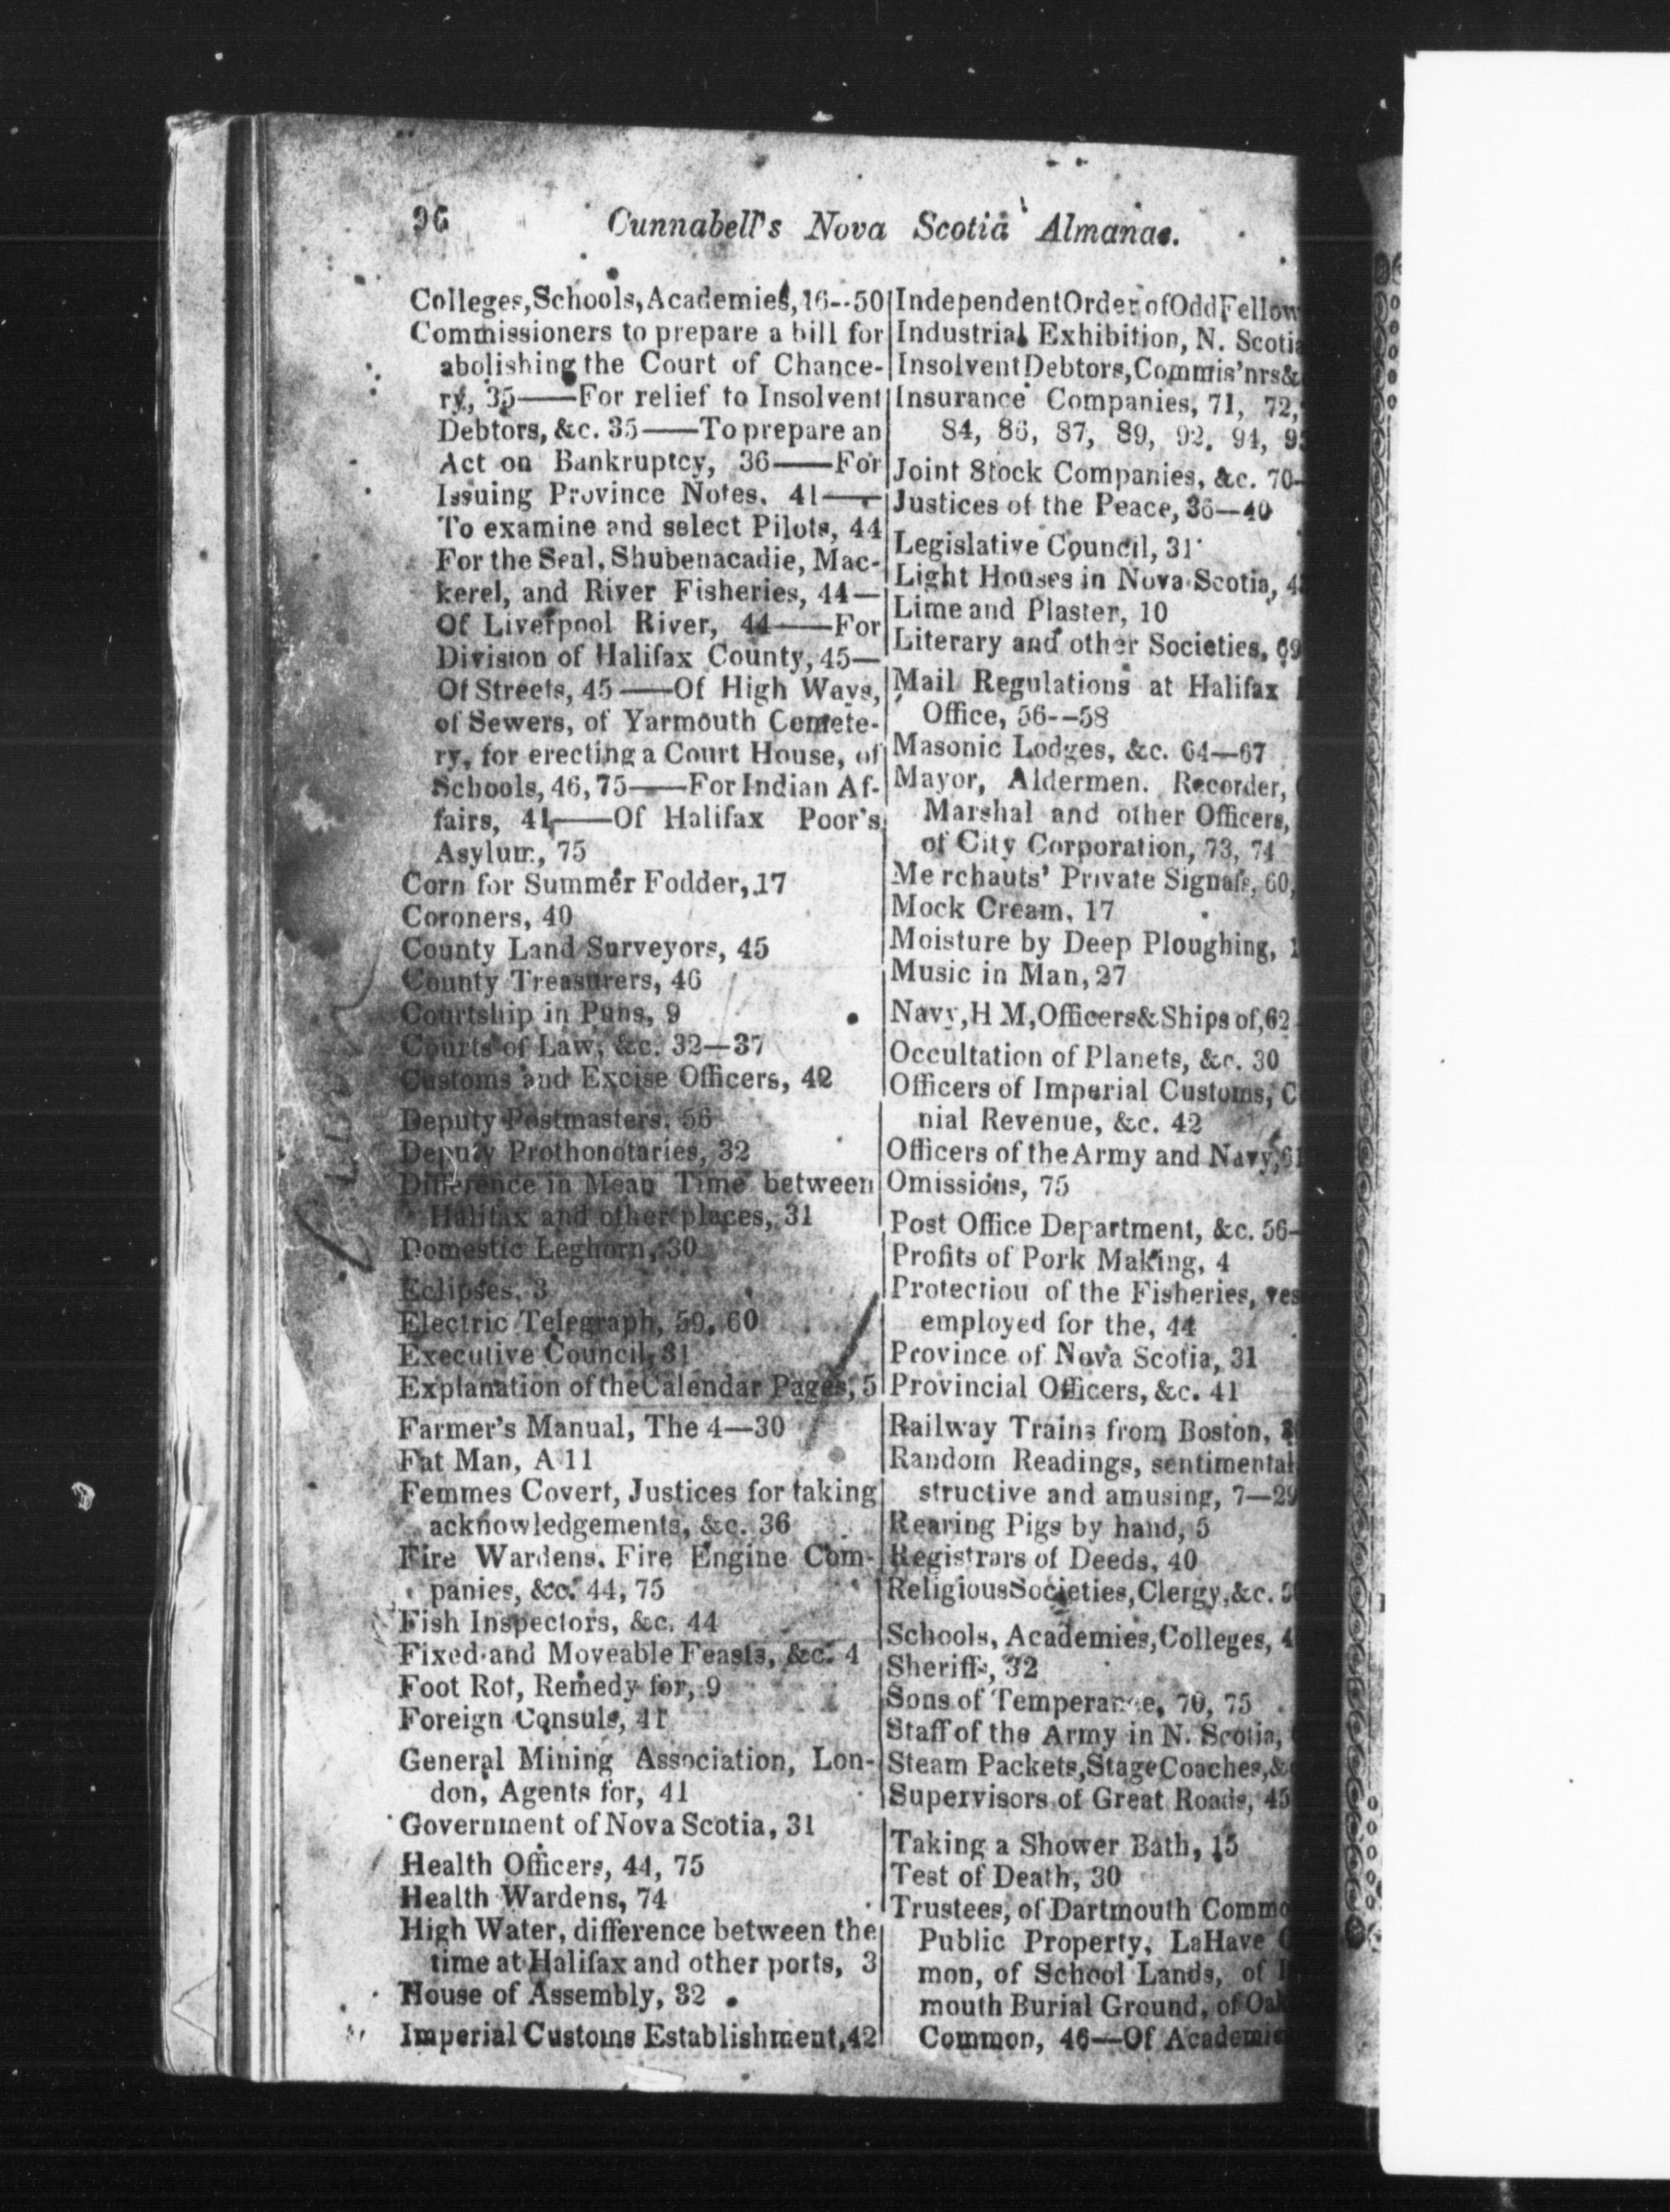 96 Cunnabell's Nova Scotia Almanac.
Colleges, Schools, Academies, 16--50
Commissioners to prepare a bill for
abolishing the Court of Chance-
ry, 35——For relief to Insolvent
Debtors, &c. 35——To prepare an
Act on Bankruptcy, 36——For
Issuing Province Notes, 41——
To examine and select Pilots, 44
For the Seal, Shubenacadie, Mac-
kerel, and River Fisheries, 44—
Of Liverpool River, 44——For
Division of Halifax County, 45—
Of Streets, 45——Of High Ways,
of Sewers, of Yarmouth Cemete-
ry, for erecting a Court House, of
Schools, 46, 75——For Indian Af-
fairs, 41——Of Halifax Poor's
Asylum, 75
Corn for Summer Fodder, 17
Coroners, 40
County Land Surveyors, 45
County Treasurers, 46
Courtship in Puns, 9
Courts of Law, &c. 32—37
Customs and Excise Officers, 42
Deputy Postmasters, 56
Deputy Prothonotaries, 32
Difference in Mean Time between
Halifax and other places, 31
Domestic Leghorn, 30
Eclipses, 3
Electric Telegraph, 59, 60
Executive Council, 31
Explanation of the Calendar Pages, 5
Farmer's Manual, The 4—30
Fat Man, A 11
Femmes Covert, Justices for taking
acknowledgements, &c. 36
Fire Wardens, Fire Engine Com-
panies, &c. 44, 75
Fish Inspectors, &c. 44
Fixed and Moveable Feasts, &c. 4
Foot Rot, Remedy for, 9
Foreign Consuls, 41
General Mining Association, Lon-
don, Agents for, 41
Government of Nova Scotia, 31
Health Officers, 44, 75
Health Wardens, 74
High Water, difference between the
time at Halifax and other ports, 3
House of Assembly, 32
Imperial Customs Establishment, 42
Independent Order of Odd Fellow
Industrial Exhibition, N. Scotia
Insolvent Debtors, Commis'nrs &
Insurance Companies, 71, 72,
84, 86, 87, 89, 92, 94, 95
Joint Stock Companies, &c. 70-
Justices of the Peace, 36—40
Legislative Council, 31
Light Houses in Nova Scotia, 4
Lime and Plaster, 10
Literary and other Societies, 69
Mail Regulations at Halifax
Office, 56--58
Masonic Lodges, &c. 64—67
Mayor, Aldermen, Recorder,
Marshal and other Officers,
of City Corporation, 73, 74
Merchauts' Private Signals, 60,
Mock Cream, 17
Moisture by Deep Ploughing, 1
Music in Man, 27
Navy, H M, Officers & Ships of, 62
Occultation of Planets, &c. 30
Officers of Imperial Customs, C
nial Revenue, &c. 42
Officers of the Army and Navy, 61
Omissions, 75
Post Office Department, &c. 56-
Profits of Pork Making, 4
Protectiou of the Fisheries, ves
employed for the, 44
Province of Nova Scotia, 31
Provincial Officers, &c. 41
Railway Trains from Boston,
Random Readings, sentimental
structive and amusing, 7—29
Rearing Pigs by hand, 5
Registrars of Deeds, 40
Religious Societies, Clergy, &c. 5
Schools, Academies, Colleges, 4
Sheriffs, 32
Sons of Temperance, 70, 75
Staff of the Army in N. Scotia,
Steam Packets, Stage Coaches, &
Supervisors of Great Roads, 45
Taking a Shower Bath, 15
Test of Death, 30
Trustees, of Dartmouth Commo
Public Property, LaHave C
mon, of School Lands, of
mouth Burial Ground, of Oak
Common, 46—Of Academie